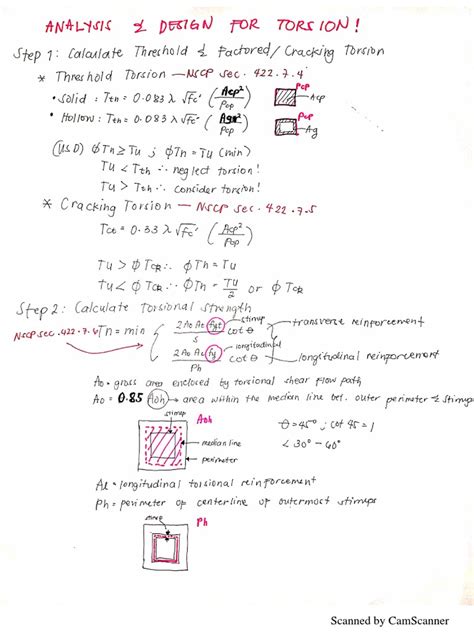 ANALYSIS & DESIGN FOR TORSION!
Step 1: Calculate Threshold & Factored/Cracking Torsion
* Threshold Torsion — NSCP Sec. 422.7.4
• Solid : Tth = 0.083 λ √fc' (Acp²/Pcp) Pcp Acp
• Hollow: Tth = 0.083 λ √fc' (Ag²/Pcp) Pcp Ag
(USD) ϕTn ≥ Tu ; ϕTn = Tu (min)
Tu < Tth ∴ neglect torsion!
Tu > Tth ∴ consider torsion!
* Cracking Torsion — NSCP Sec. 422.7.5
Tcr = 0.33 λ √fc' (Acp²/Pcp)
Tu > ϕTcr ∴ ϕTn = Tu
Tu < ϕTcr ∴ ϕTn = Tu/2 or ϕTcr
Step 2: Calculate Torsional Strength
NSCP Sec. 422.7.6 Tn = min
2AoAt fyt / s cot θ stirrup transverse reinforcement
2AoAl fy / Ph cot θ longitudinal longitudinal reinforcement
Ao - gross area enclosed by torsional shear flow path
Ao = 0.85 Aoh → area within the median line bet. outer perimeter & stirrups
stirrup Aoh
θ = 45° ; cot 45 = 1
median line
∠ 30° - 60°
perimeter
Al = longitudinal torsional reinforcement
Ph = perimeter of centerline of outermost stirrups
stirrup Ph
Scanned by CamScanner